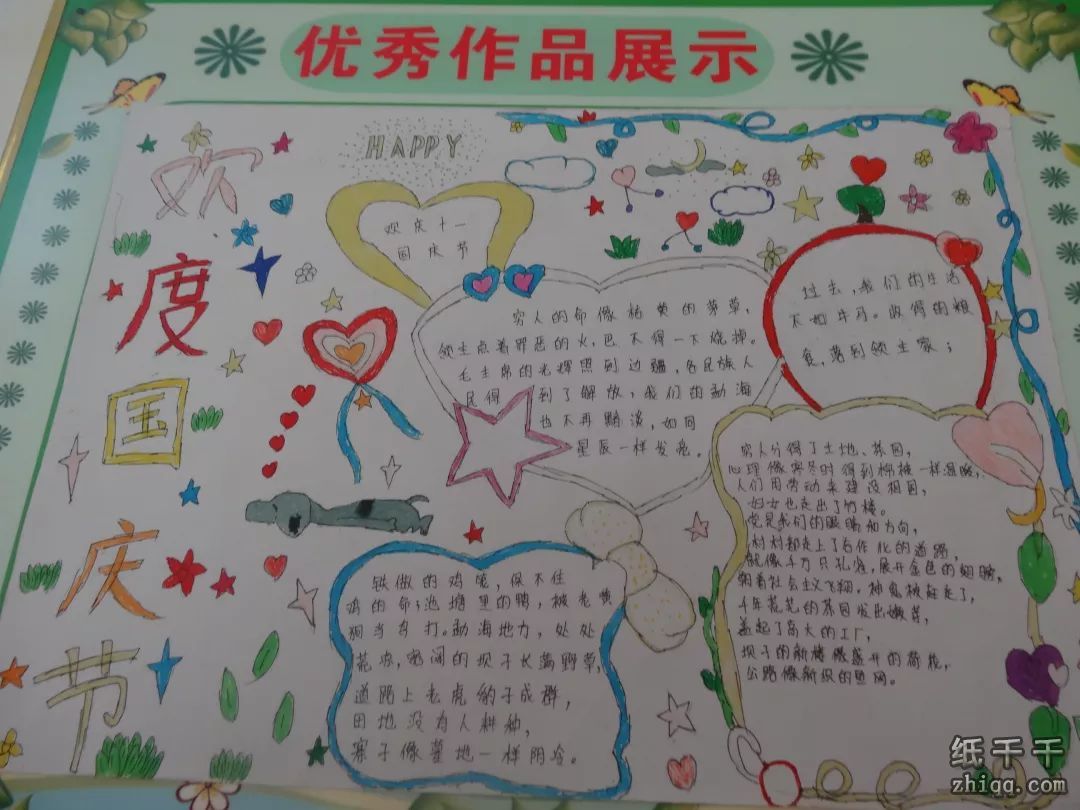 优秀作品展示
欢度国庆节
HAPPY
欢庆十一
国庆节
穷人的命像枯黄的茅草,
领主点着罪恶的火,巴不得一下烧掉。
毛主席的光辉照到边疆,各民族人
民得到了解放,我们的勐海
也不再黯淡,如同
星辰一样发亮。
过去,我们的生活
不如牛马。收得的粮
食,落到领主家;
穷人分得了土地、茶园,
心理像寒冬时得到棉被一样温暖,
人们用劳动来建设祖国,
妇女也走出了竹楼。
党是我们的眼睛和方向,
村村都走上了合作化的道路,
就像千万只孔雀,展开金色的翅膀,
朝着社会主义飞翔。神鬼被赶走了,
千年荒芜的茶园发出嫩芽,
盖起了高大的工厂,
坝子的新楼像盛开的荷花,
公路像新织的鱼网。
铁做的鸡笼,保不住
鸡的命;池塘里的鸭,被老黄
狗当旁打。勐海地方,处处
荒凉,宽阔的坝子长满野草,
道路上老虎豹子成群,
田地没有人耕种,
寨子像墓地一样阴冷。
纸千千
zhiqq.com